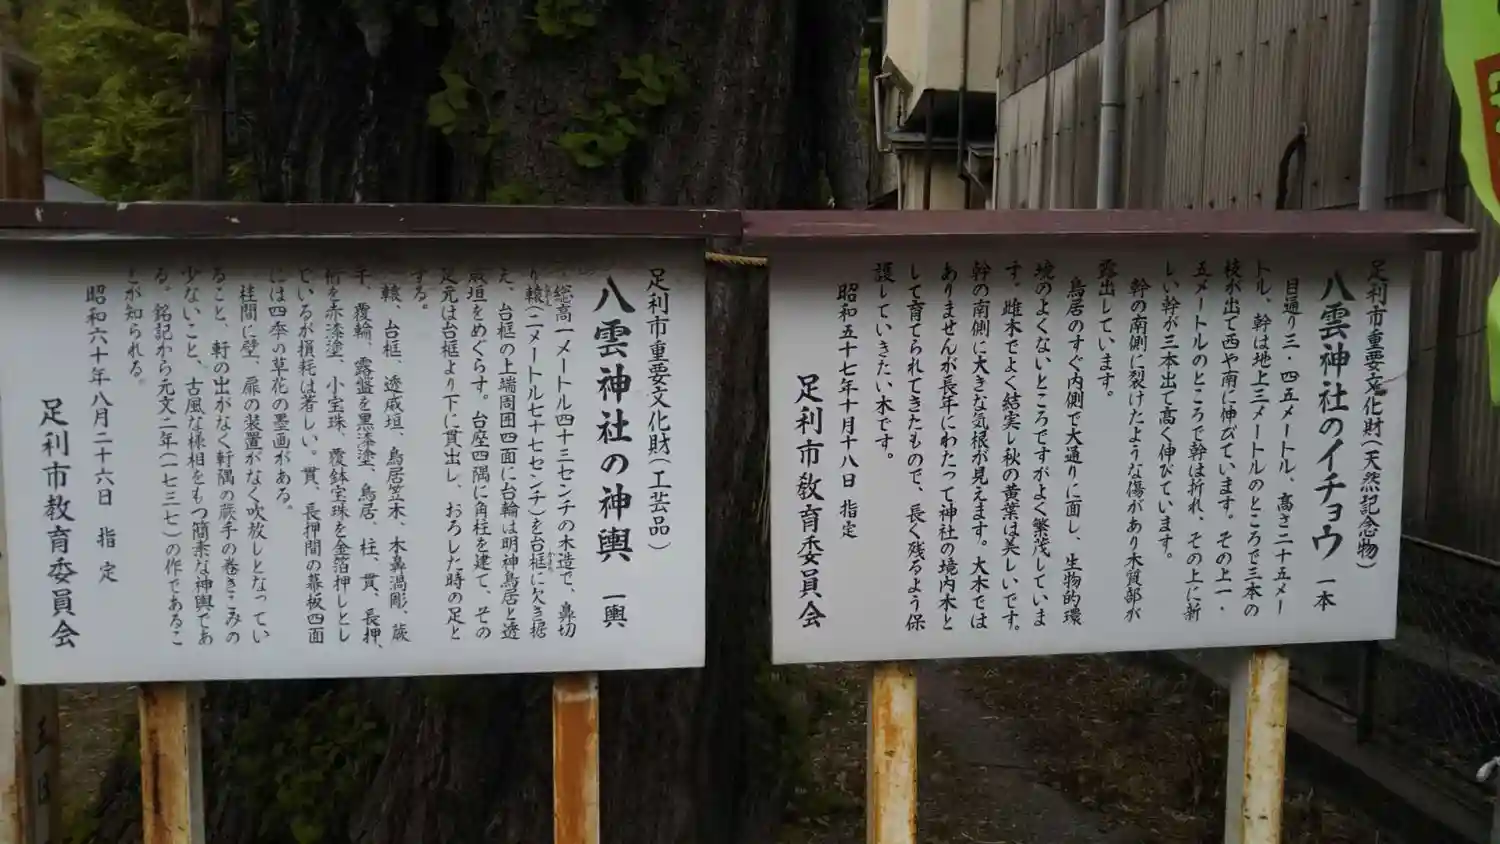 足利市重要文化財(天然記念物)
八雲神社のイチョウ 一本
目通り三・四五メートル、高さ二十五メー
トル、幹は地上三メートルのところで三本の
枝が出て西や南に伸びています。その上一・
五メートルのところで幹は折れ、その上に新
しい幹が三本出て高く伸びています。
幹の南側に裂けたような傷があり木質部が
露出しています。
鳥居のすぐ内側で大通りに面し、生物的環
境のよくないところですがよく繁茂していま
す。雌木でよく結実し秋の黄葉は美しいです。
幹の南側に大きな気根が見えます。大木では
ありませんが長年にわたって神社の境内木と
して育てられてきたもので、長く残るよう保
護していきたい木です。
昭和五十七年十月十八日 指定
足利市教育委員会
足利市重要文化財(工芸品)
八雲神社の神輿 一輿
総高一メートル四十三センチの木造で、鼻切
り轅(二メートル七十七センチ)を台框に欠き据
え、台框の上端周囲四面に台輪は明神鳥居と透
威垣をめぐらす。台座四隅に角柱を建て、その
足元は台框より下に貫出し、おろした時の足と
する。
轅、台框、透威垣、鳥居笠木、木鼻渦彫、蕨
手、覆輪、露盤を黒漆塗、鳥居、柱、貫、長押、
桁を赤漆塗、小宝珠、覆鉢宝珠を金箔押しとし
ているが損耗は著しい。貫、長押間の幕板四面
には四季の草花の墨画がある。
柱間に壁、扉の装置がなく吹放しとなってい
ること、軒の出がなく軒隅の蕨手の巻きこみの
少ないこと、古風な様相をもつ簡素な神輿であ
る。銘記から元文二年(一七三七)の作であるこ
とが知られる。
昭和六十年八月二十六日 指定
足利市教育委員会